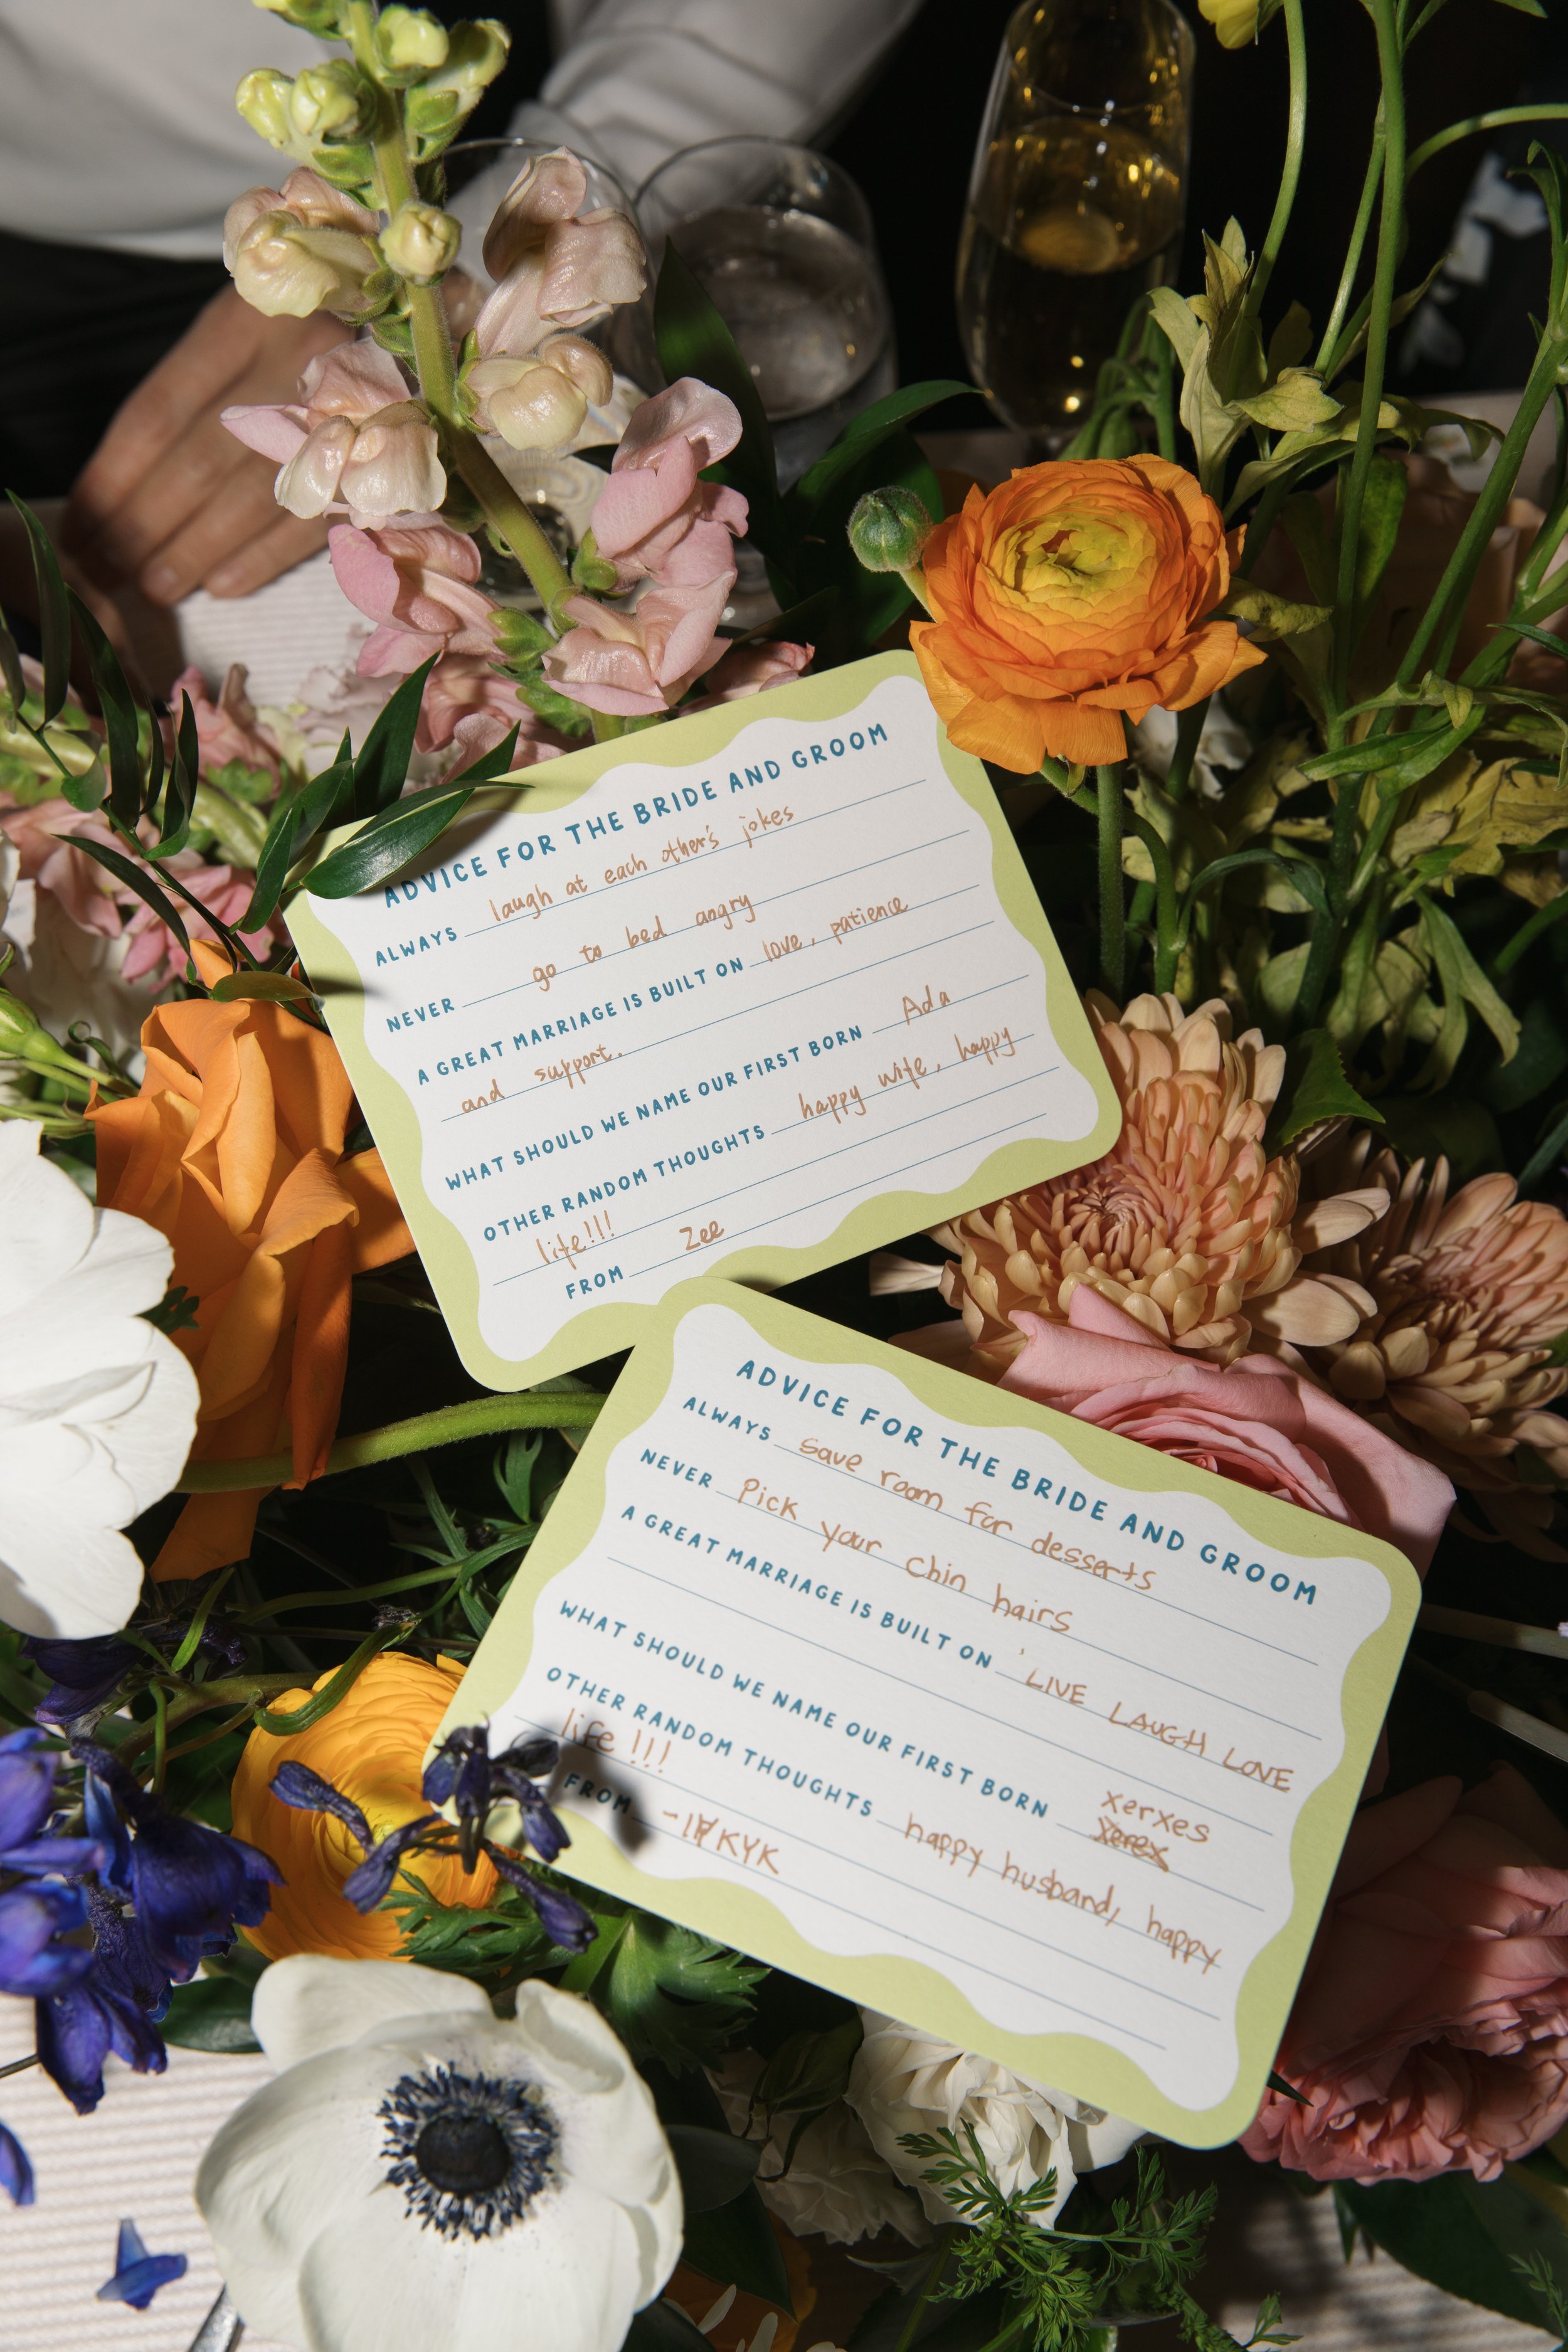 ADVICE FOR THE BRIDE AND GROOM
ALWAYS laugh at each other's jokes
NEVER go to bed angry
A GREAT MARRIAGE IS BUILT ON love, patience
and support.
WHAT SHOULD WE NAME OUR FIRST BORN Ada
OTHER RANDOM THOUGHTS happy wife, happy
life!!!
FROM Zee
ADVICE FOR THE BRIDE AND GROOM
ALWAYS save room for desserts
NEVER Pick your Chin hairs
A GREAT MARRIAGE IS BUILT ON 'LIVE LAUGH LOVE
WHAT SHOULD WE NAME OUR FIRST BORN xerxes
OTHER RANDOM THOUGHTS happy husband, happy
life !!!
FROM